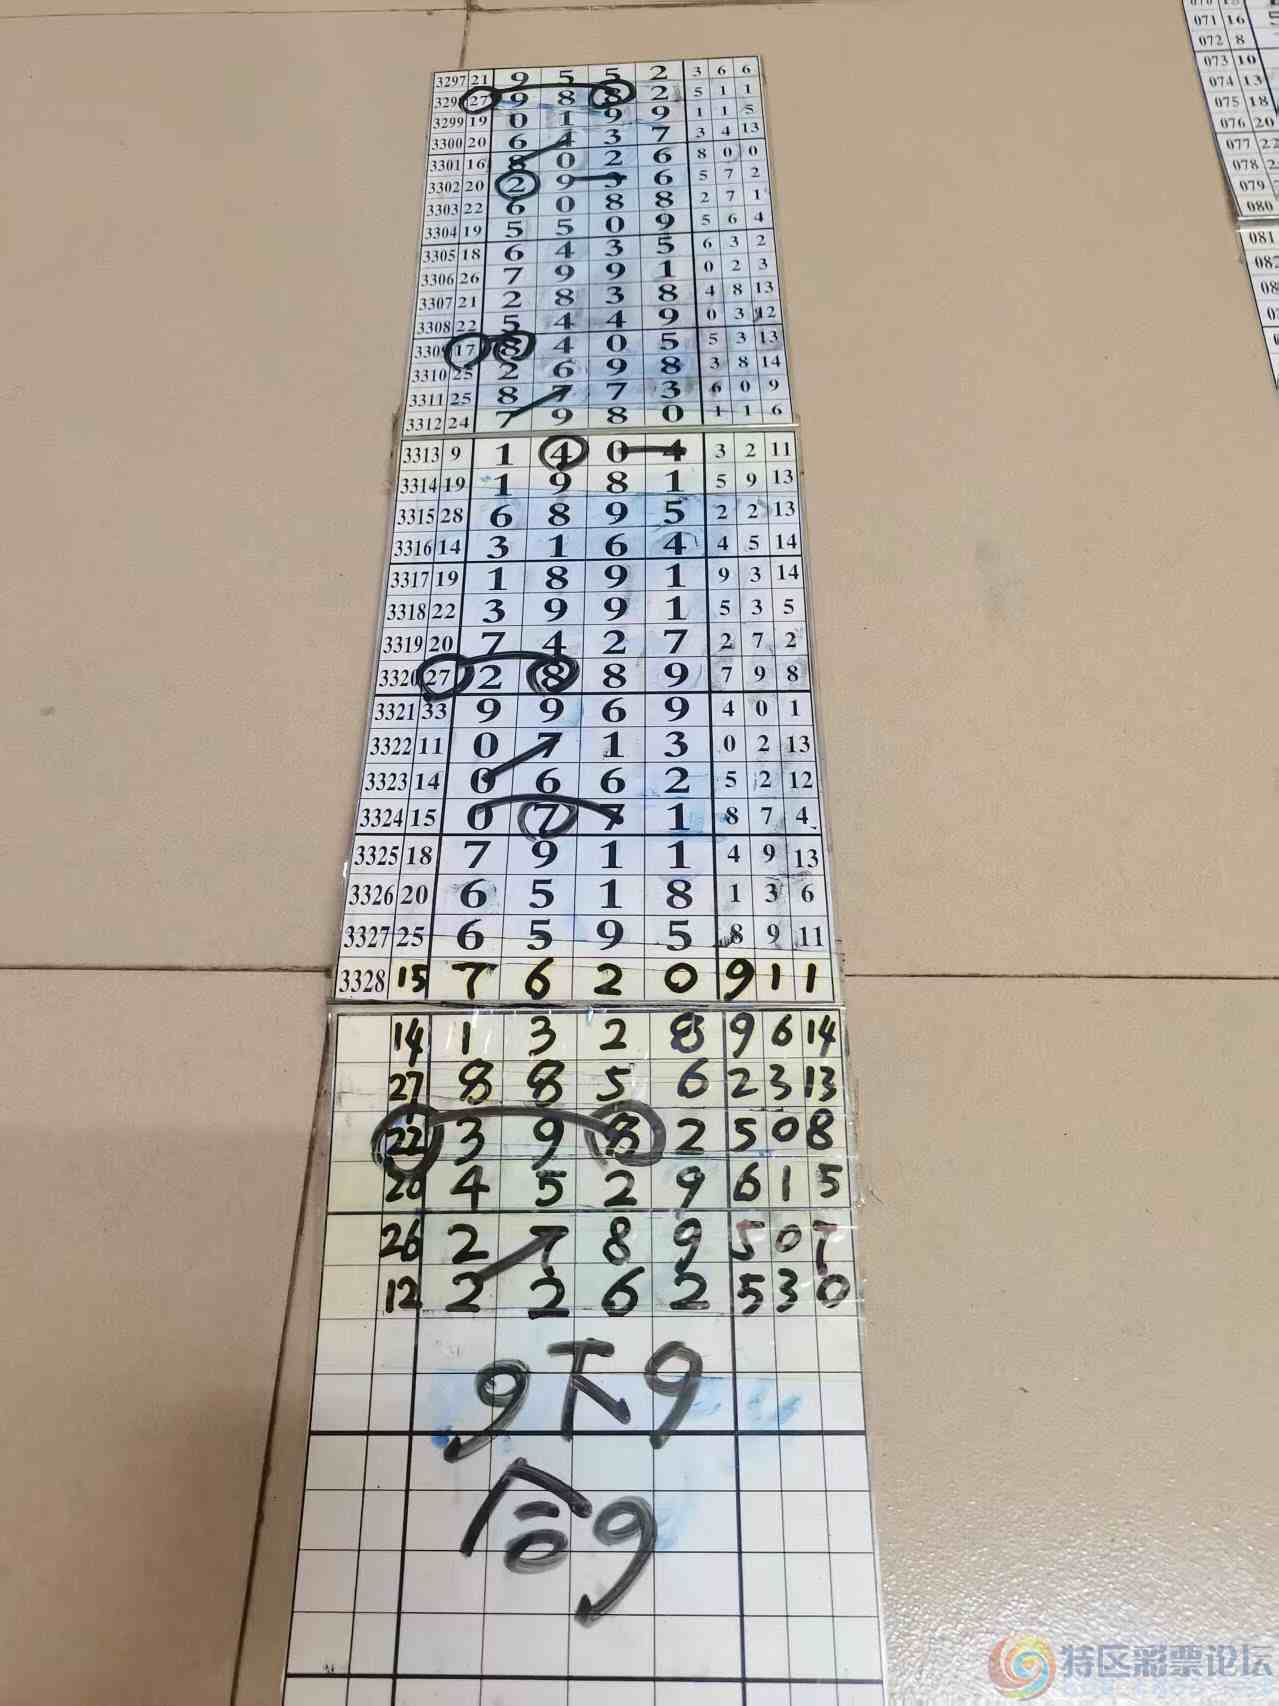 3297 21 9 5 5 2 3 6 6
27 9 8 8 2 5 1 1
3299 19 0 1 9 9 1 1 5
3300 20 6 4 3 7 3 4 13
3301 16 8 0 2 6 8 0 0
3302 20 2 9 3 6 5 7 2
3303 22 6 0 8 8 2 7 1
3304 19 5 5 0 9 5 6 4
3305 18 6 4 3 5 6 3 2
3306 26 7 9 9 1 0 2 3
3307 21 2 8 3 8 4 8 13
3308 22 5 4 4 9 0 3 12
3309 17 8 4 0 5 5 3 13
3310 25 2 6 9 8 3 8 14
3311 25 8 7 7 3 6 0 9
3312 24 7 9 8 0 1 1 6
3313 9 1 4 0 4 3 2 11
3314 19 1 9 8 1 5 9 13
3315 28 6 8 9 5 2 2 13
3316 14 3 1 6 4 4 5 14
3317 19 1 8 9 1 9 3 14
3318 22 3 9 9 1 5 3 5
3319 20 7 4 2 7 2 7 2
3320 27 2 8 8 9 7 9 8
3321 33 9 9 6 9 4 0 1
3322 11 0 7 1 3 0 2 13
3323 14 0 6 6 2 5 2 12
3324 15 0 7 7 1 8 7 4
3325 18 7 9 1 1 4 9 13
3326 20 6 5 1 8 1 3 6
3327 25 6 5 9 5 8 9 11
3328 15 7 6 2 0 9 1 1
14 1 3 2 8 9 6 14
27 8 8 5 6 2 3 13
22 3 9 8 2 5 0 8
20 4 5 2 9 6 1 5
26 2 7 8 9 5 0 7
12 2 2 6 2 5 3 0
9下9
合9
071 16
072 8
073 10
074 13
075 18
076 20
077 22
078
079
080
081
特区彩票论坛